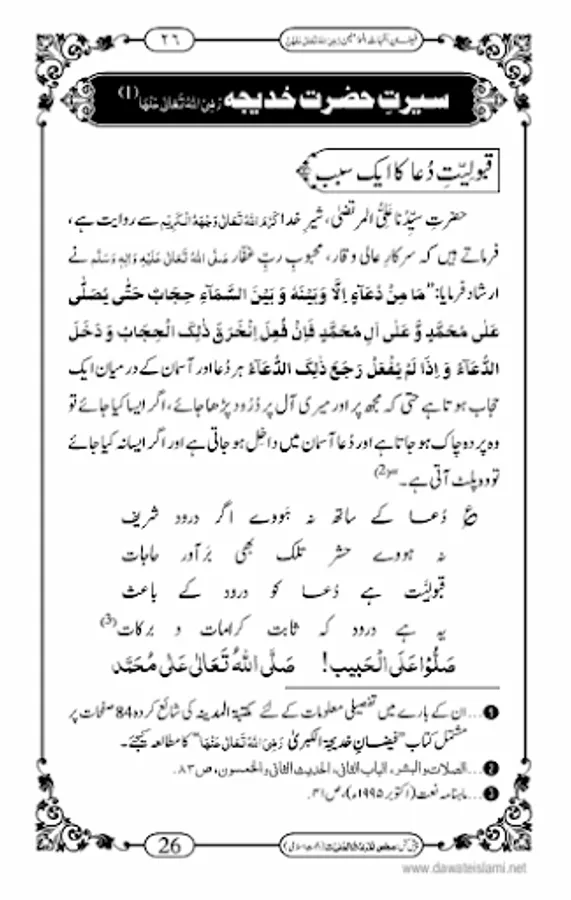 فیضانِ اُمہاتُ المؤمنین رَضِیَ اللهُ تَعَالٰی عَنْہُنَّ
۲٦
سیرتِ حضرت خدیجہ رَضِیَ اللهُ تَعَالٰی عَنْہَا (1)
قبولیّتِ دُعا کا ایک سبب
حضرتِ سیّدُنا علیُّ المرتضٰی، شیرِ خدا کَرَّمَ اللهُ تَعَالٰی وَجْہَہُ الْکَرِیْم سے روایت ہے،
فرماتے ہیں کہ سرکارِ عالی وقار، محبوبِ ربِّ غفّار صَلَّی اللهُ تَعَالٰی عَلَیْہِ وَاٰلِہٖ وَسَلَّم نے
ارشاد فرمایا: ”مَا مِنْ دُعَآءٍ اِلَّا وَبَیْنَهٗ وَبَیْنَ السَّمَآءِ حِجَابٌ حَتّٰی یُصَلّٰی
عَلٰی مُحَمَّدٍ وَّ عَلٰی اٰلِ مُحَمَّدٍ فَاِنْ فُعِلَ اِنْخَرَقَ ذٰلِکَ الْحِجَابُ وَ دَخَلَ
الدُّعَآءُ وَ اِذَا لَمْ یُفْعَلْ رَجَعَ ذٰلِکَ الدُّعَآءُ ہر دُعا اور آسمان کے درمیان ایک
حجاب ہوتا ہے حتی کہ مجھ پر اور میری آل پر دُرُود پڑھا جائے، اگر ایسا کیا جائے تو
وہ پردہ چاک ہو جاتا ہے اور دُعا آسمان میں داخِل ہو جاتی ہے اور اگر ایسا نہ کیا جائے
تو وہ پلٹ آتی ہے۔“(2)
؏ دُعا کے ساتھ نہ ہووے اگر درود شریف
نہ ہووے حشر تلک بھی بَرآور حاجات
قبولیّت ہے دُعا کو درود کے باعث
یہ ہے درود کہ ثابت کرامات و برکات(3)
صَلُّوْا عَلَی الْحَبِیْب! صَلَّی اللهُ تَعَالٰی عَلٰی مُحَمَّد
❶... ان کے بارے میں تفصیلی معلومات کے لئے مکتبۃ المدینہ کی شائع کردہ 84 صفحات پر
مشتمل کتاب ”فیضانِ خدیجۃ الکبریٰ رَضِیَ اللهُ تَعَالٰی عَنْہَا“ کا مطالعہ کیجئے۔
❷... الصلات والبشر، الباب الثانی، الحدیث الثانی والخمسون، ص۸۳.
❸... ماہنامہ نعت (اکتوبر ۱۹۹۵ء)، ص۳۱.
26
www.dawateislami.net